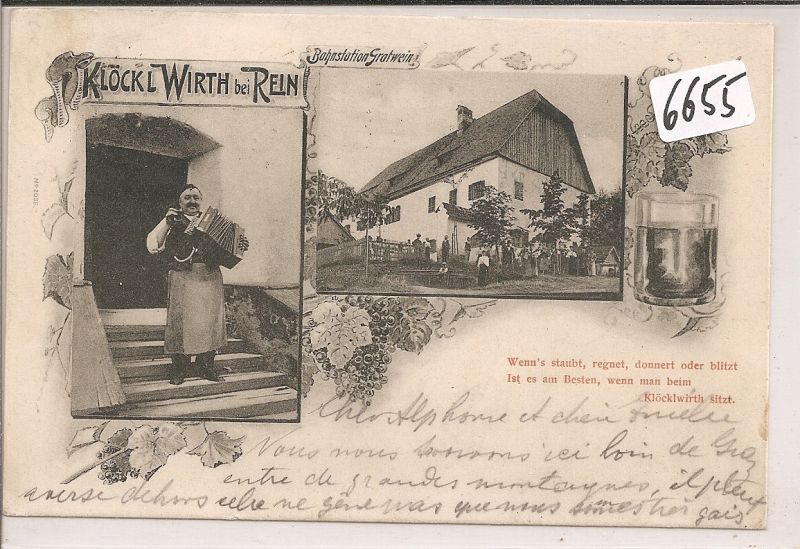 KLÖCKL WIRTH bei REIN
Bahnstation Gratwein.
6655
Wenn's staubt, regnet, donnert oder blitzt
Ist es am Besten, wenn man beim
Klöcklwirth sitzt.
Cher Alphonse et chère
Vous nous trouvons ici loin de Graz
entre de grandes montagnes, il pleut
averse dehors cela ne gène pas que nous sommes très gais